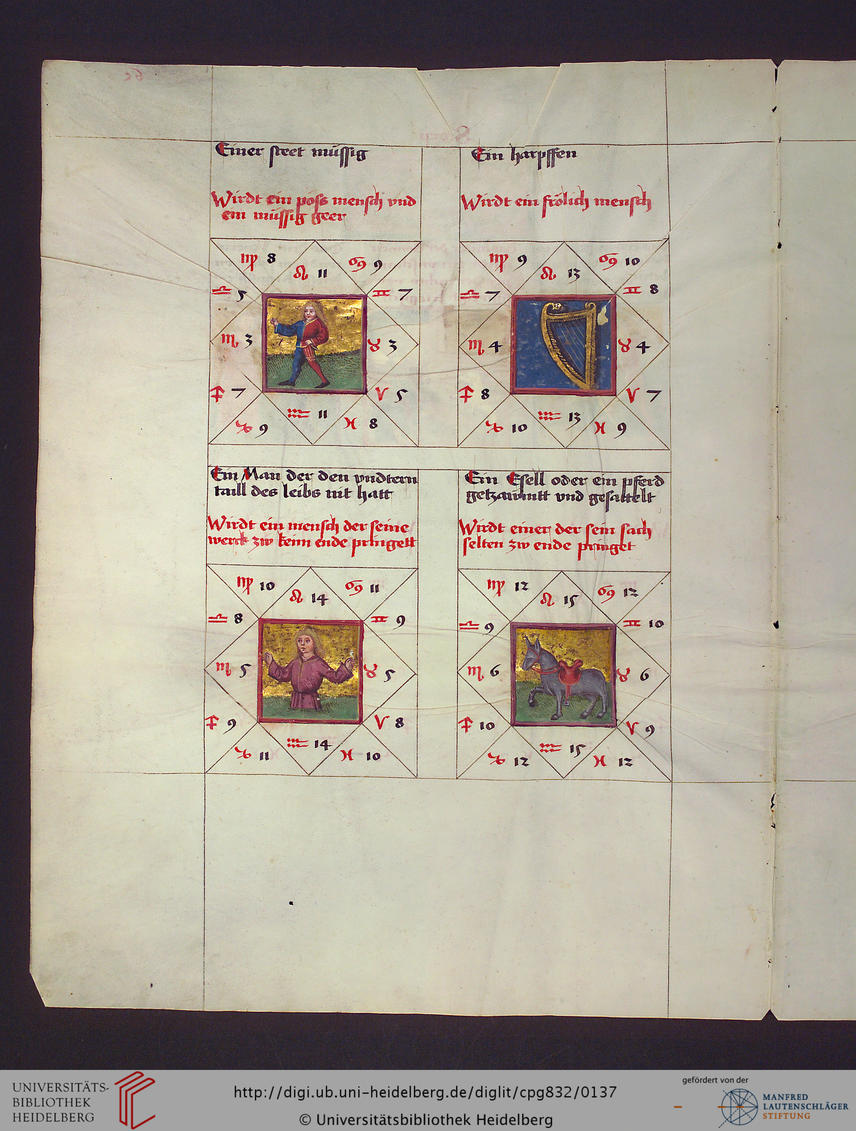 Einer steet müssig
Wirdt ein poss mensch vnd
ein müssig geer
♍ 8 ♌ 11 ♋ 9
♎ 5 ♊ 7
♏ 3 ♉ 3
♐ 7 ♈ 5
♑ 9 ♒ 11 ♓ 8
Ein harpffen
Wirdt ein frölich mensch
♍ 9 ♌ 13 ♋ 10
♎ 7 ♊ 8
♏ 4 ♉ 4
♐ 8 ♈ 7
♑ 10 ♒ 13 ♓ 9
Ein Man der den vndtern
taill des leibs nit hatt
Wirdt ein mensch der seine
werck zw keim ende pringett
♍ 10 ♌ 14 ♋ 11
♎ 8 ♊ 9
♏ 5 ♉ 5
♐ 9 ♈ 8
♑ 11 ♒ 14 ♓ 10
Ein Esell oder ein pferd
getzawmtt vnd gesattelt
Wirdt einer der sein sach
selten zw ende pringet
♍ 12 ♌ 15 ♋ 12
♎ 9 ♊ 10
♏ 6 ♉ 6
♐ 10 ♈ 9
♑ 12 ♒ 15 ♓ 12
UNIVERSITÄTS-
BIBLIOTHEK
HEIDELBERG
http://digi.ub.uni-heidelberg.de/diglit/cpg832/0137
© Universitätsbibliothek Heidelberg
gefördert von der
MANFRED
LAUTENSCHLÄGER
STIFTUNG